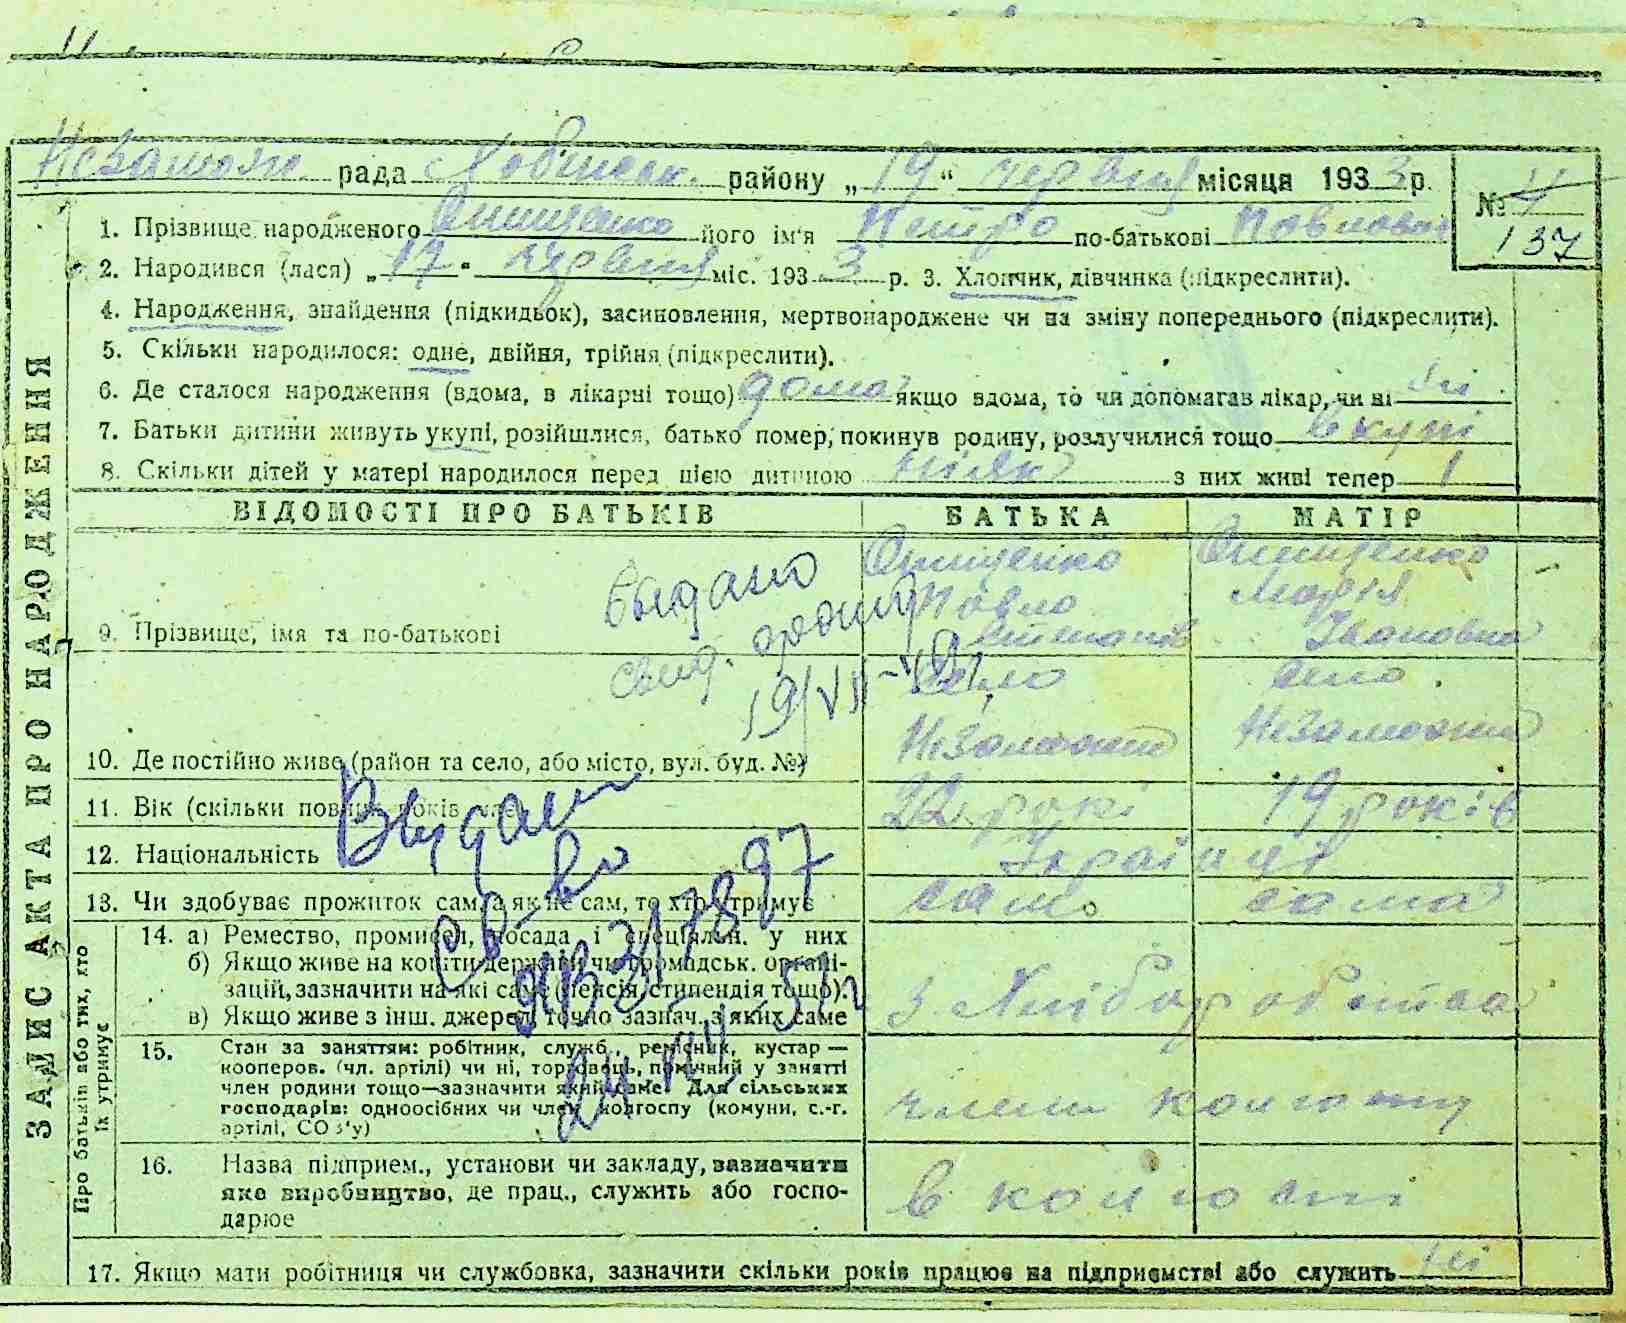 Незамож. рада району „19“ червня місяця 1933 р.
№ 4
137
1. Прізвище народженого Онищенко його ім'я Петро по-батькові Павлович
2. Народився (лася) „17“ червня міс. 1933 р. 3. Хлопчик, дівчинка (підкреслити).
4. Народження, знайдення (підкидьок), засиновлення, мертвонароджене чи на зміну попереднього (підкреслити).
5. Скільки народилося: одне, двійня, трійня (підкреслити).
6. Де сталося народження (вдома, в лікарні тощо) дома якщо вдома, то чи допомагав лікар, чи ні ні
7. Батьки дитини живуть укупі, розійшлися, батько помер, покинув родину, розлучилися тощо вкупі
8. Скільки дітей у матері народилося перед цією дитиною з них живі тепер 1
ЗАПИС АКТА ПРО НАРОДЖЕННЯ
ВІДОМОСТІ ПРО БАТЬКІВ БАТЬКА МАТІР
Онищенко Онищенко
Павло Марія
9. Прізвище, імя та по-батькові Степанов Івановна
Выдано
свид.
19/VII-49
село село
10. Де постійно живе (район та село, або місто, вул. буд. №) Незаможн Незаможн
11. Вік (скільки повних років має) 22 рокі 19 років
12. Національність Українці
13. Чи здобуває прожиток сам, а як не сам, то хто утримує сам. сама
Выдан
св-во
ЯВ 3178
Про батьків або тих, хто їх утримує
14. а) Ремество, промисел, посада і спеціяльн. у них
б) Якщо живе на кошти держави чи громадськ. органі-
зацій, зазначити на які саме (пенсія, стипендія тощо).
в) Якщо живе з інш. джерел, точно зазнач. з яких саме
з Хліборобства
15. Стан за заняттям: робітник, служб., ремісник, кустар —
кооперов. (чл. артілі) чи ні, торговець, помічний у занятті
член родини тощо—зазначити який саме. Для сільських
господарів: одноосібних чи член колгоспу (комуни, с.-г.
артілі, СОз'у)
члени колгоспу
16. Назва підприєм., установи чи закладу, зазначити
яке виробництво, де прац., служить або госпо-
дарює
в колгоспі
17. Якщо мати робітниця чи службовка, зазначити скільки років працює на підприємстві або служить ні